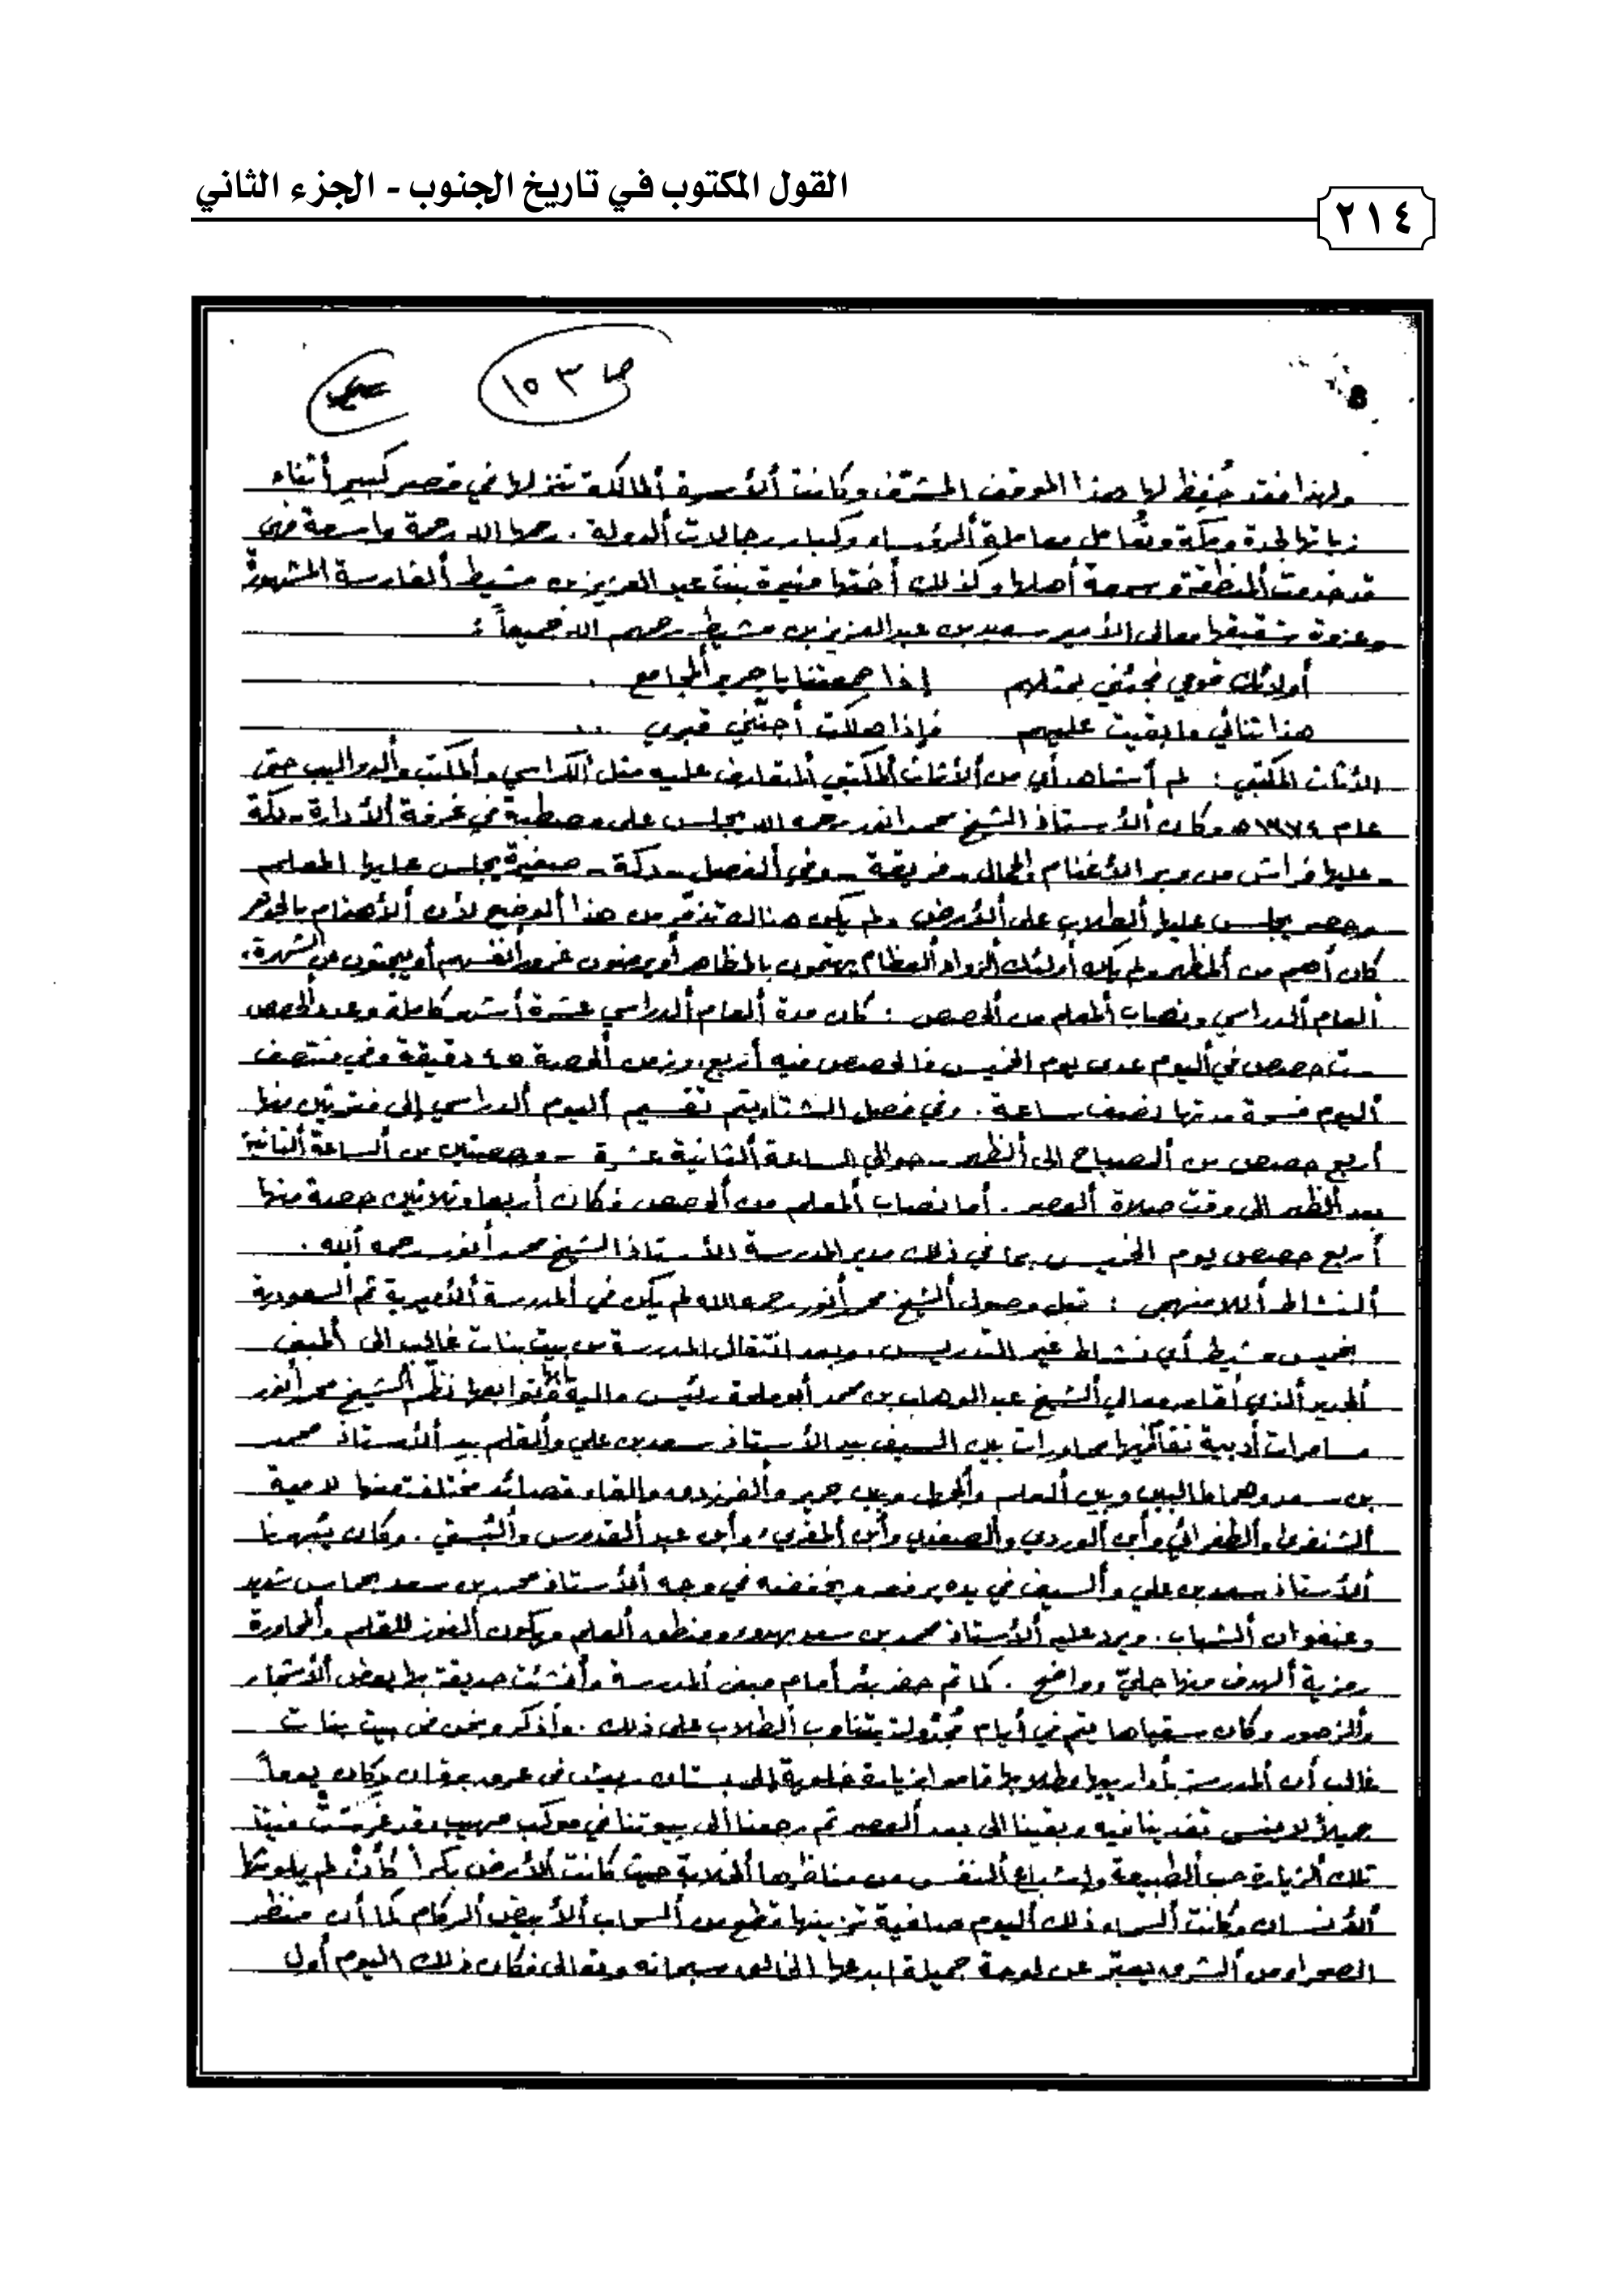 القول المكتوب في تاريخ الجنوب - الجزء الثاني
٢١٤
8
ص ٣ ١٥
ولهذا فقد حُفِظ لها هذا الموقف المشرّف وكانت الأسرة المالكة تنزلها في قصر كبير أثناء
زياتها لجدة ومكة وتُعامل معاملة الرؤساء وكبار رجالات الدولة . رحمها الله رحمة واسعة فهي
قد خدمت المنطقة وسمعة أهلها وكذلك أختها منيرة بنت عبد العزيز بن مشيط الفارسة المشهورة
وعزوة شقيقها معالي الأمير سعيد بن عبد العزيز بن مشيط رحمهم الله جميعاً :
أولئك قومي فجئني بمثلهم إذا جمعتنا يا جرير المجامع .
هذا ثنائي ما بقيت عليهم فإذا هلكت أجنّني قبري ..
الأثاث المكتبي : لم أشاهد أي من الأثاث المكتبي المتعارف عليه مثل الكراسي والمكتب والدواليب حتى
عام ١٣٧٤هـ وكان الأستاذ الشيخ محمد أنور رحمه الله يجلس على مصطبة في غرفة الأدارة - دكة
- عليها فراش من وبر الأغنام الجمال - فريقة - وفي الفصل - دكة - صغيرة يجلس عليها المعلم
وحصر يجلس عليها الطلاب على الأرض . ولم يكن هناك تذمّر من هذا الوضع لأن الأهتمام بالجوهر
كان أهم من المظهر ولم يك أولئك الرواد العظام يهتمون بالمظاهر أو يرضون غرور أنفسهم أو يبحثون عن الشهرة .
العام الدراسي ونصاب المعلم من الحصص : كان مدة العام الدراسي عشرة أشهر كاملة وعدد الحصص
ست حصص في اليوم عدى يوم الخميس فالحصص فيه أربع . وزمن الحصة ٤٥ دقيقة وفي منتصف
اليوم فسحة مدتها نصف ساعة . وفي فصل الشتاء يتم تقسيم اليوم الدراسي إلى فترتين منها
أربع حصص من الصباح الى الظهر - حوالي الساعة الثانية عشرة - وحصتين من الساعة الثانية
بعد الظهر الى وقت صلاة العصر . أما نصاب المعلم من الحصص فكان أربعا وثلاثين حصة منها
أربع حصص يوم الخميس بما في ذلك مدير المدرسة الأستاذ الشيخ محمد أنور رحمه الله .
النشاط اللامنهجي : قبل وصول الشيخ محمد أنور رحمه الله لم يكن في المدرسة الأميرية ثم السعودية
بخميس مشيط أي نشاط غير التدريس . وبعد انتقال المدرسة من بيت بنات غالب الى المبنى
الجديد الذي أقامه معالي الشيخ عبد الوهاب بن محمد أبو ملحة رئيس مالية أبها وتوابعها نظّم الشيخ محمد أنور
مسامرات أدبية ثقافية بها محاورات بين السيف بيد الأستاذ سعد بن علي والقلم بيد الأستاذ محمد
بن سعد وهما طالبين وبين العلم والجهل وبين جرير والفرزدق وإلقاء قصائد مختلفة منها لامية
الشنفرى والطغرائي وأبن الوردي والصفدي وأبن المقري ، وأبن عبد القدوس والبُستي . وكان يُبهرنا
الأستاذ سعد بن علي والسيف في يده يرفعه ويخفضه في وجه الأستاذ محمد بن سعد بحماس شديد
وعنفوان الشباب . ويرد عليه الأستاذ محمد بن سعد بهدوء ومنطق العلم ويكون الفوز للقلم والمحاورة
رمزية الهدف منها جليّ وواضح . كما تم حفر بئر أمام مبنى المدرسة وأنشئت حديقة بها بعض الأشجار
والزهور وكان سقياها يتم في أيام مُجدولة يتناوب الطلاب على ذلك . وأذكر ونحن في بيت بنات
غالب أن المدرسة بأداريها وطلابها قاموا بزيارة خلوية إلى بستان بهيش في عرق برقان وكان يوماً
جميلاً لا يُنسى تغدينا فيه وبقينا الى بعد العصر ثم رجعنا الى بيوتنا في موكب مهيب وقد غرست فينا
تلك الزيارة حب الطبيعة وإشباع النفس من مناظرها الخلابة حيث كانت الأرض بكراً كأنْ لم يلوثها
الأنسان وكانت السماء ذلك اليوم صافية تزينها قطع من السحاب الأبيض الركام كما أن منظر
الصحراء من الشرق يعبّر عن لوحة جميلة ابدعها الخالق سبحانه وتعالى فكان ذلك اليوم أول